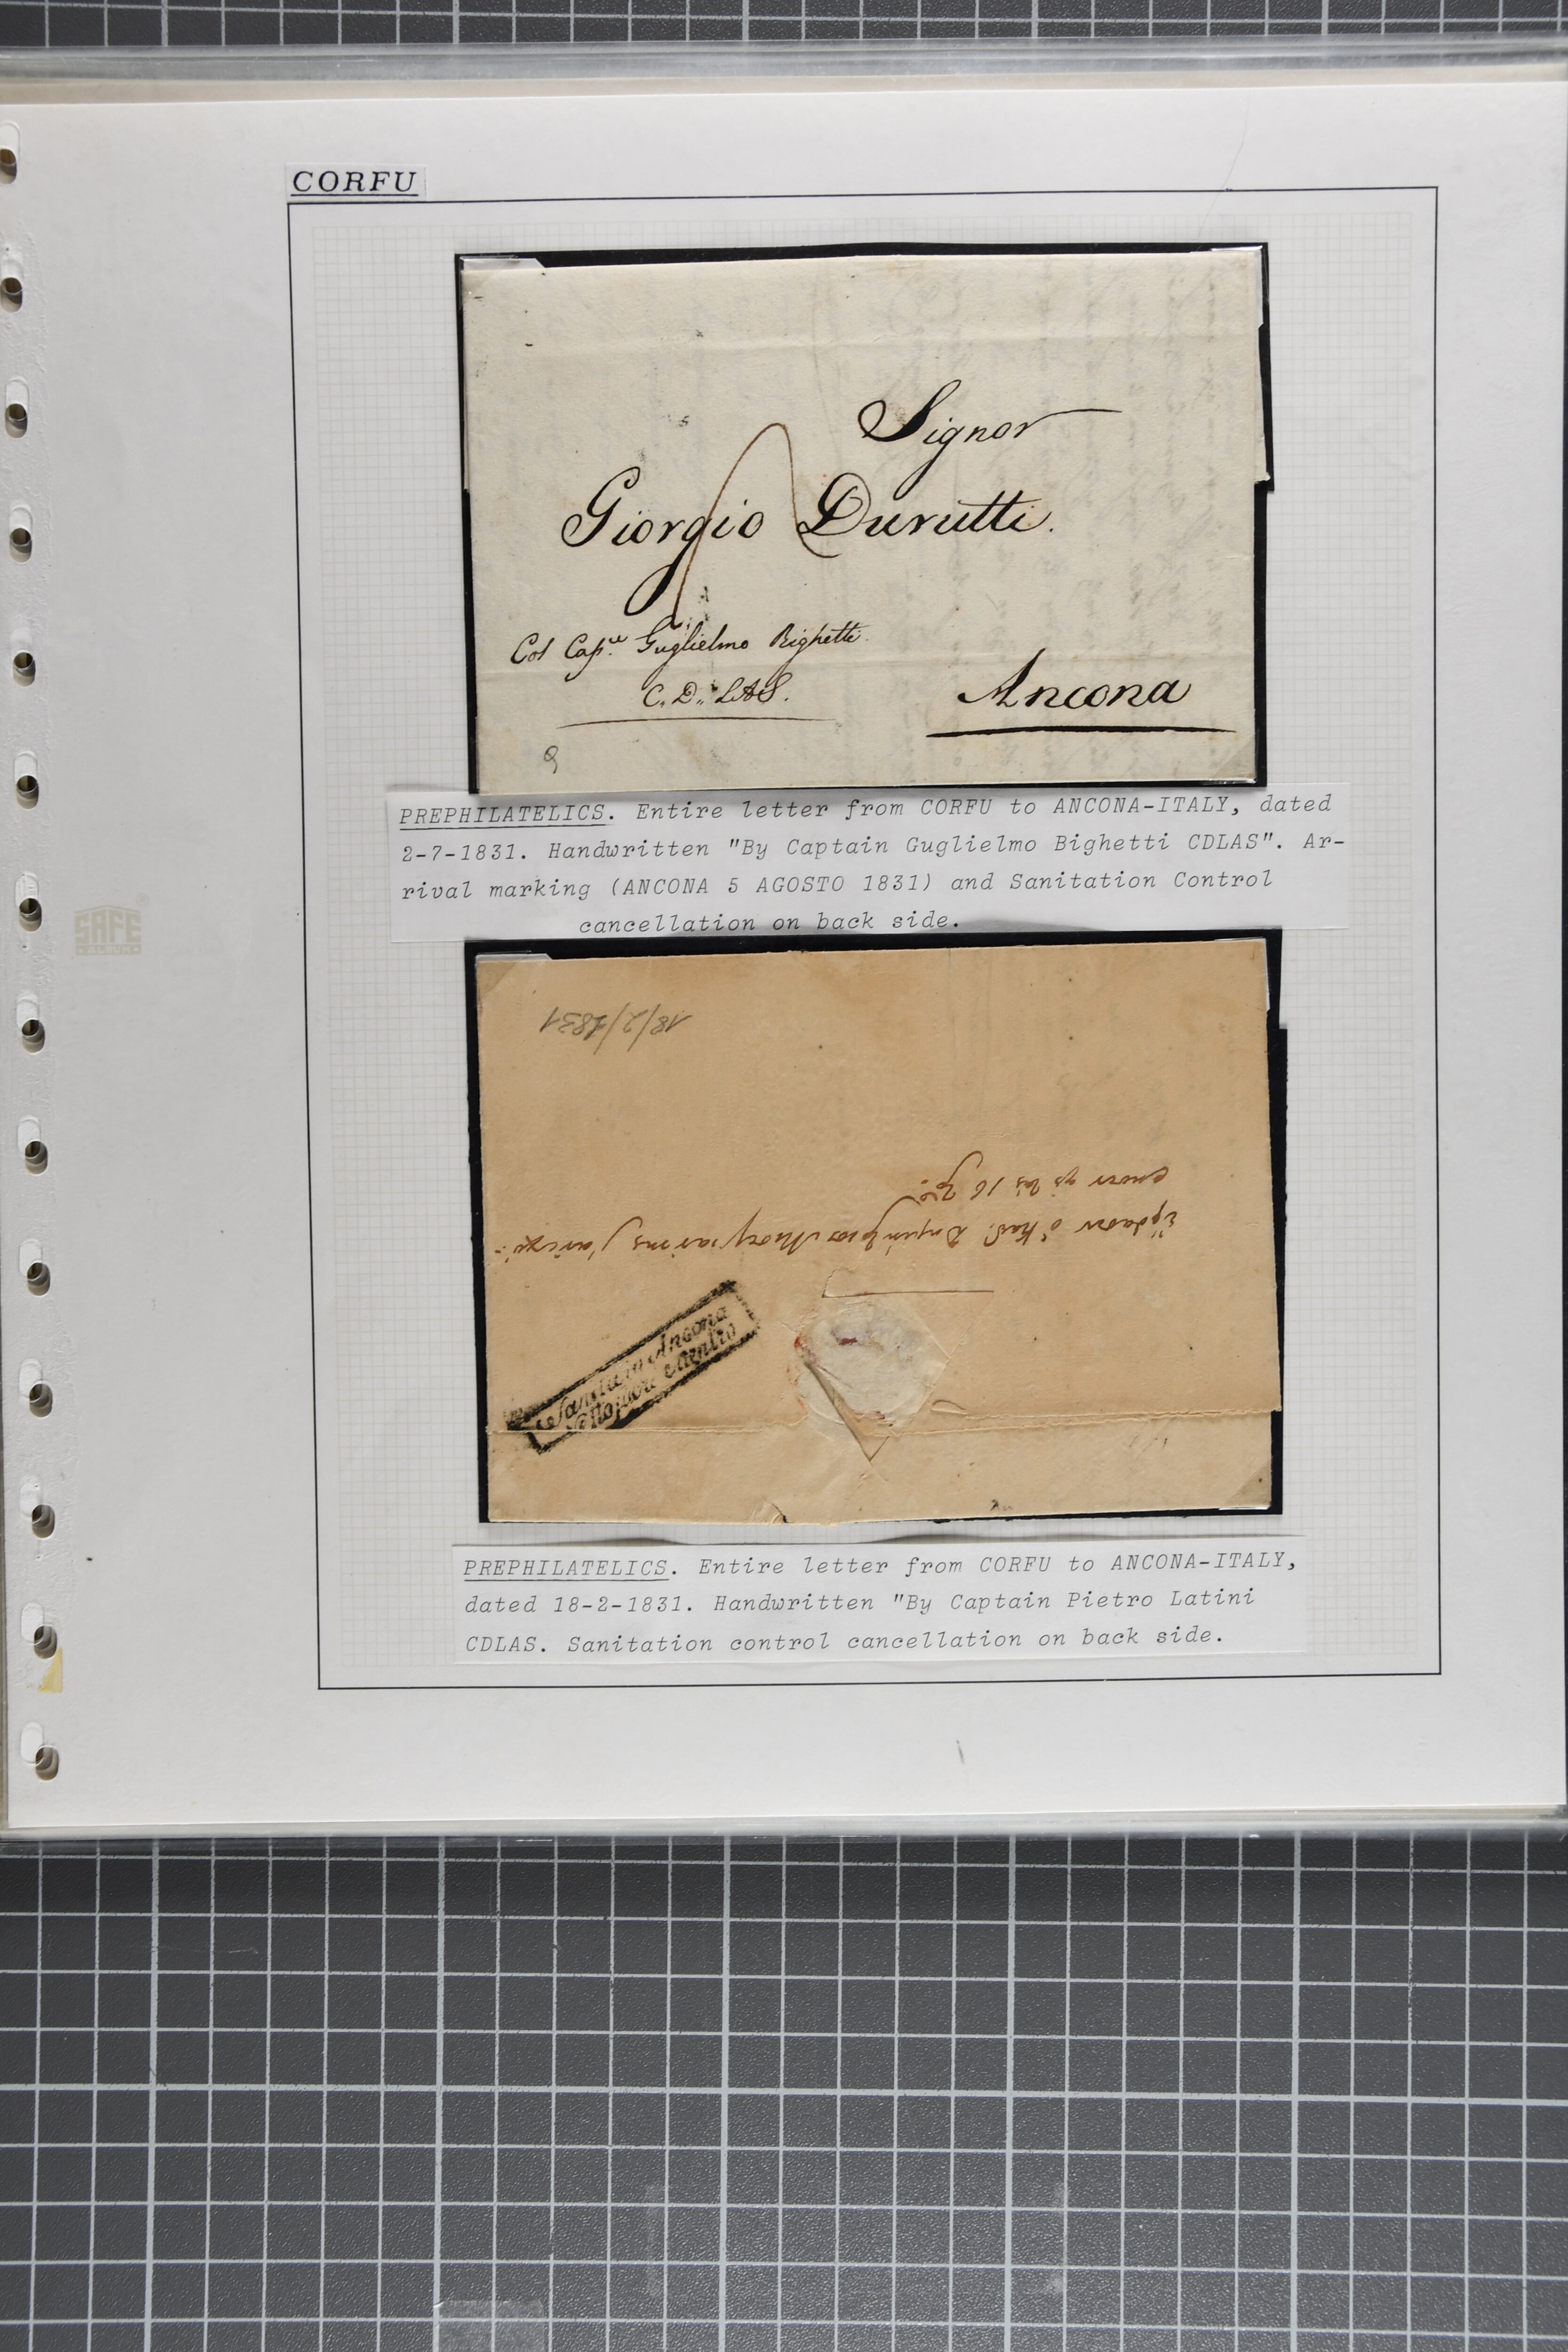 CORFU
Signor
Giorgio Durutti.
Col Cap.ne Guglielmo Bighetti
C. D. LAS.
Ancona
PREPHILATELICS. Entire letter from CORFU to ANCONA-ITALY, dated
2-7-1831. Handwritten "By Captain Guglielmo Bighetti CDLAS". Ar-
rival marking (ANCONA 5 AGOSTO 1831) and Sanitation Control
cancellation on back side.
SAFE
18/2/1831
16
Ancona
PREPHILATELICS. Entire letter from CORFU to ANCONA-ITALY,
dated 18-2-1831. Handwritten "By Captain Pietro Latini
CDLAS. Sanitation control cancellation on back side.